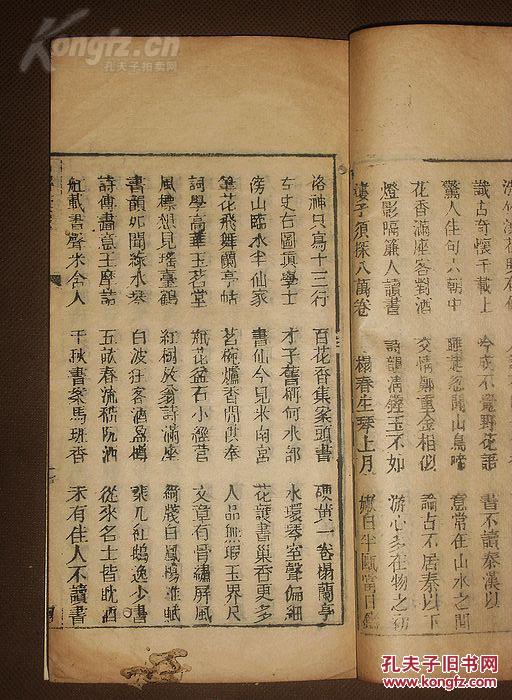 Kongfz.cn
孔夫子拍卖网
識古奇懷千載上
驚人佳句六朝中 忽聞山鳥啼 意常在山水之間
花香滿座客對酒 交情鄭重金相似 論古不居秦以下
燈影隔簾人讀書 詩韻清鏘玉不如 游心多在物之初
須探八萬卷 榻春生琴上月
洛神只寫十三行 百花香集案頭書 硬黃一卷榻蘭亭
左史右圖項學士 才子舊稱何水部 水環琴室聲偏細
傍山臨水半仙家 書仙今見米南宮 花護書巢香更多
筆花飛舞蘭亭帖 茗碗爐香閒供奉 人品無瑕玉界尺
詞學高華玉茗堂 瓶花盆石小經營 文章有骨繡屏風
風標想見瑤臺鶴 紅樹放翁詩滿座 白鳳揚雄賦
書韻如聞綠水琴 白波狂客酒盈樽 棐几紅鵝逸少書
詩傳畫意王摩詰 從來名士皆耽酒
載書聲米舍人 千秋書案馬班香 未有佳人不讀書
孔夫子旧书网
www.kongfz.com